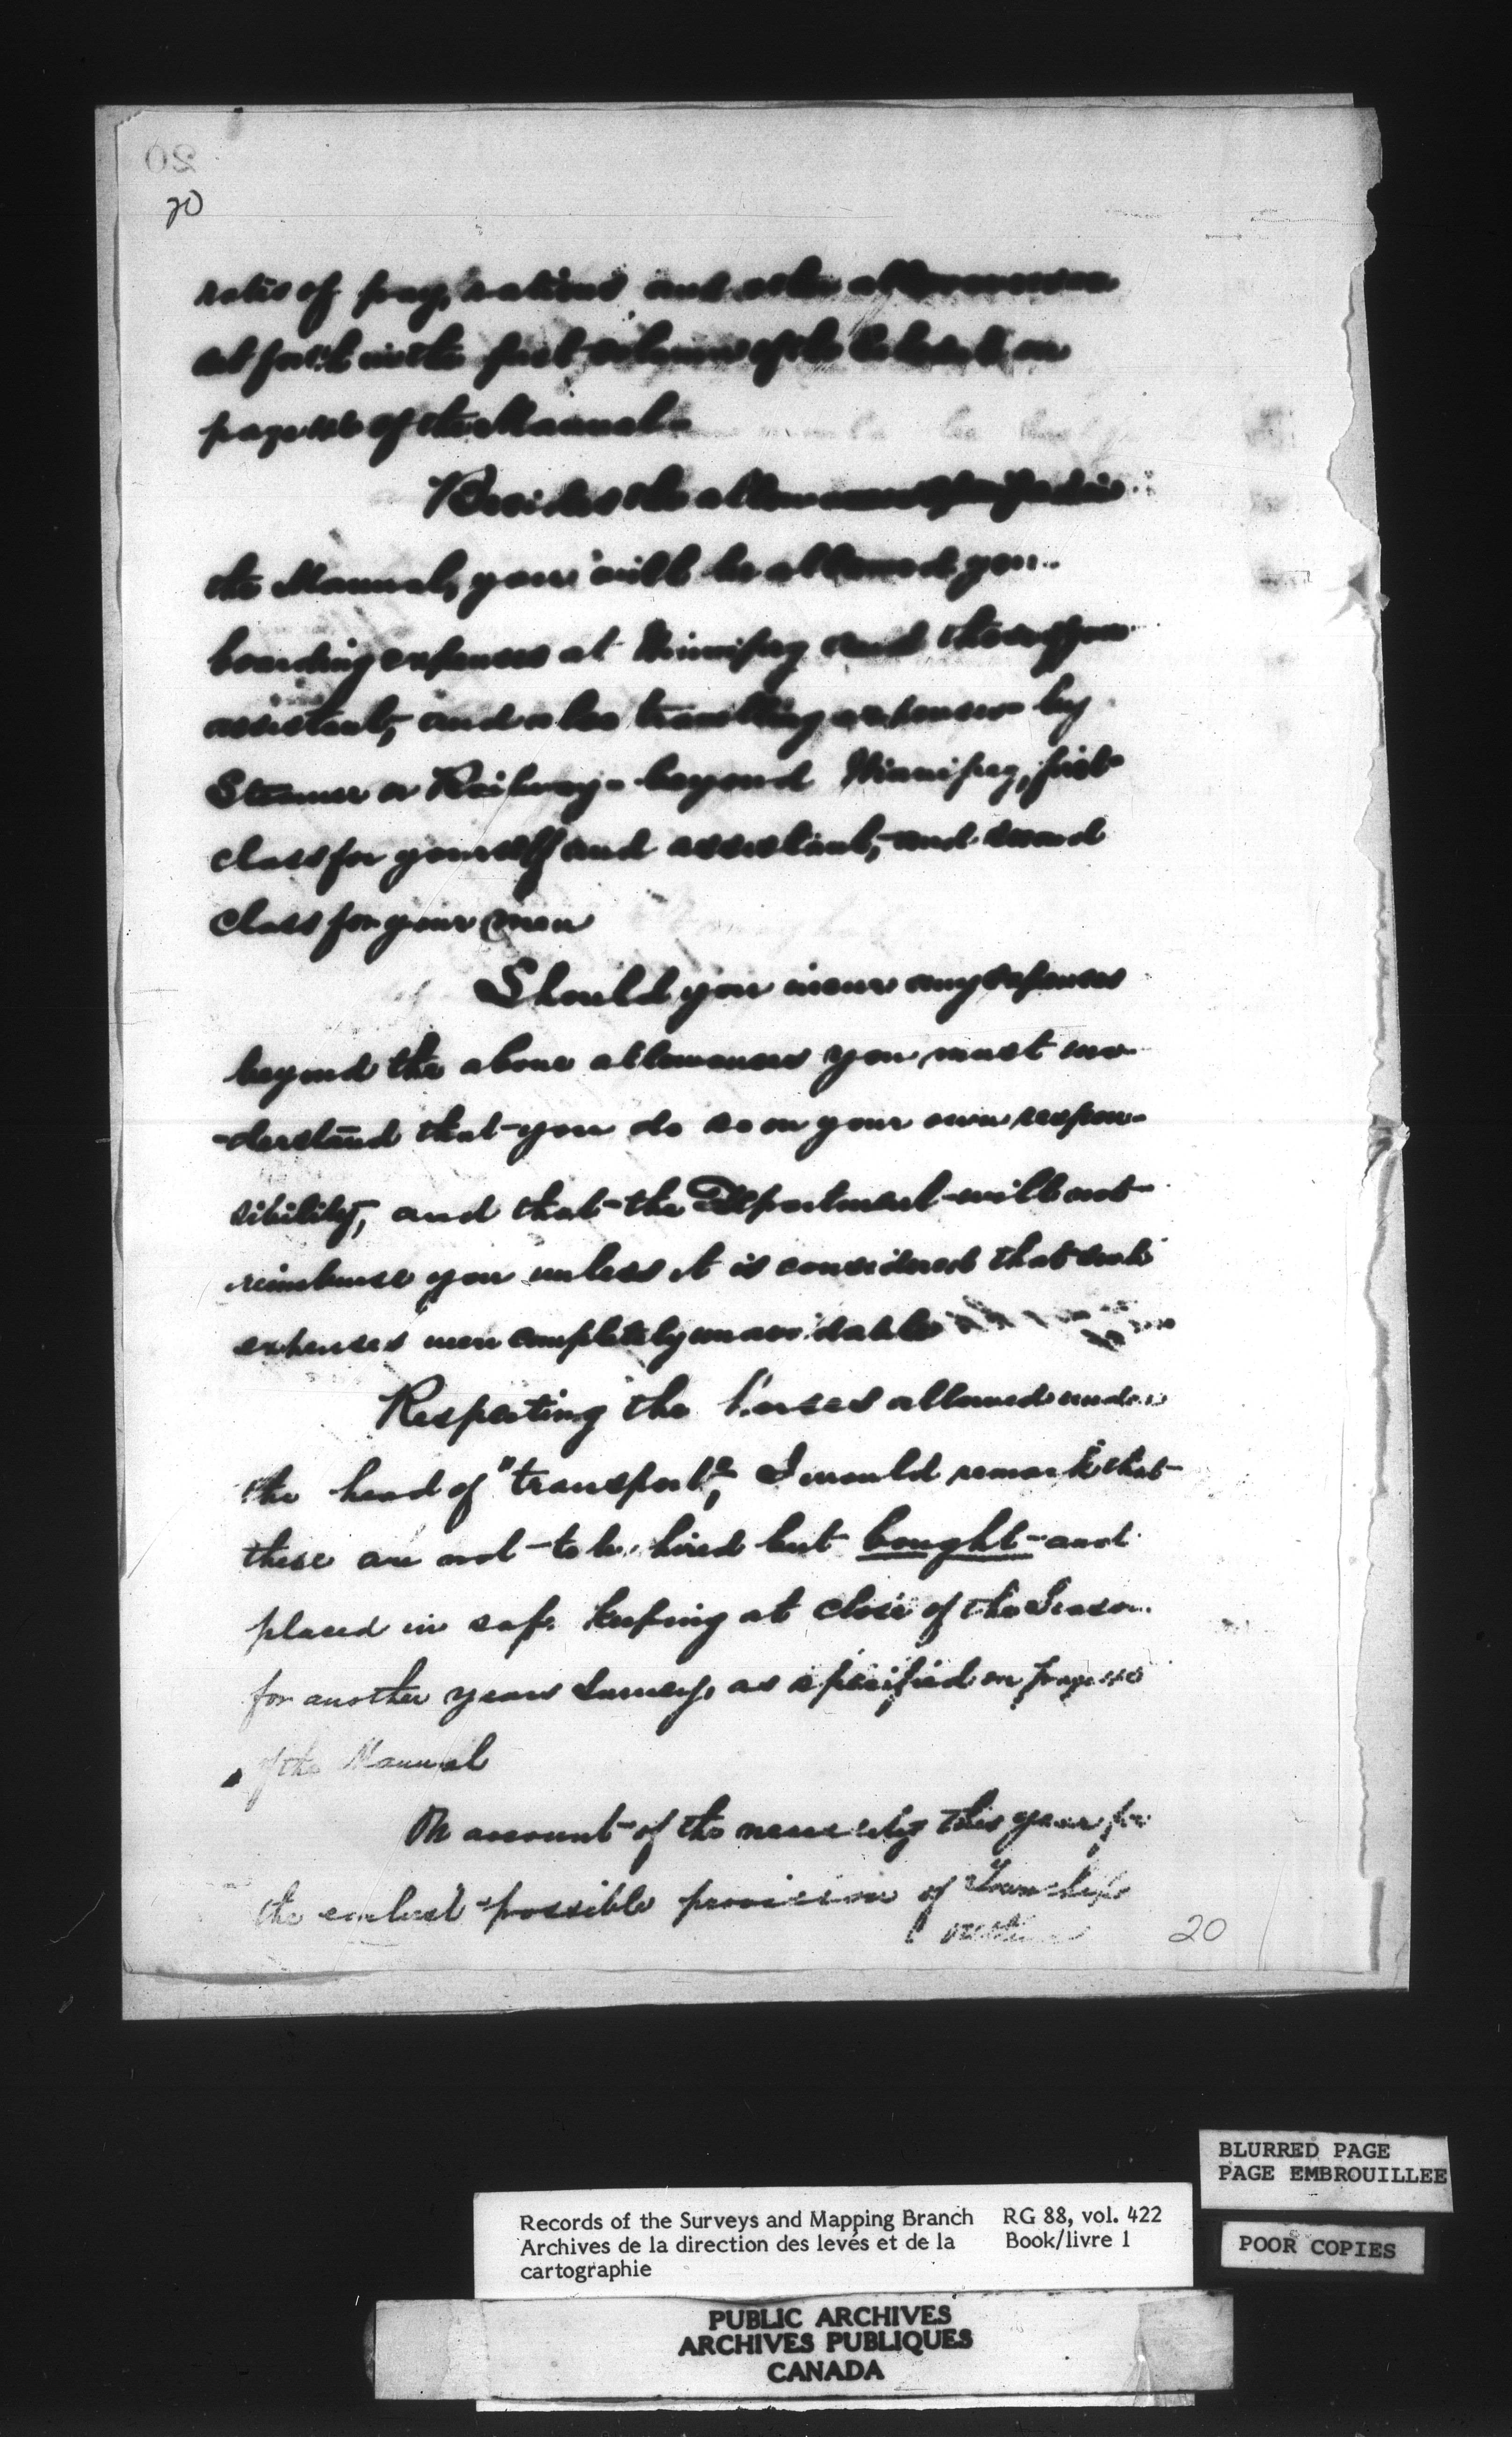 20
20
rates of pay, rations and other allowances
set forth in the first column of the Schedule on
page of the Manual
Besides the allowances specified in
the Manual, you will be allowed your
boarding expenses at Winnipeg and those of your
assistant, and also travelling expenses by
Steamer or Railway beyond Winnipeg, first
class for yourself and assistant, and second
class for your men
Should you incur any expenses
beyond the above allowances you must un-
-derstand that you do so on your own respon-
sibility, and that the Department will not
reimburse you unless it is considered that such
expenses were completely unavoidable
Respecting the horses allowed under
the head of "transport", I would remark that
these are not to be hired but bought and
placed in safe keeping at close of the Season
for another years Survey, as specified on page
of the Manual
On account of the necessity this year for
the earliest possible provision of Township
20
BLURRED PAGE
PAGE EMBROUILLEE
POOR COPIES
Records of the Surveys and Mapping Branch RG 88, vol. 422
Archives de la direction des levés et de la Book/livre 1
cartographie
PUBLIC ARCHIVES
ARCHIVES PUBLIQUES
CANADA